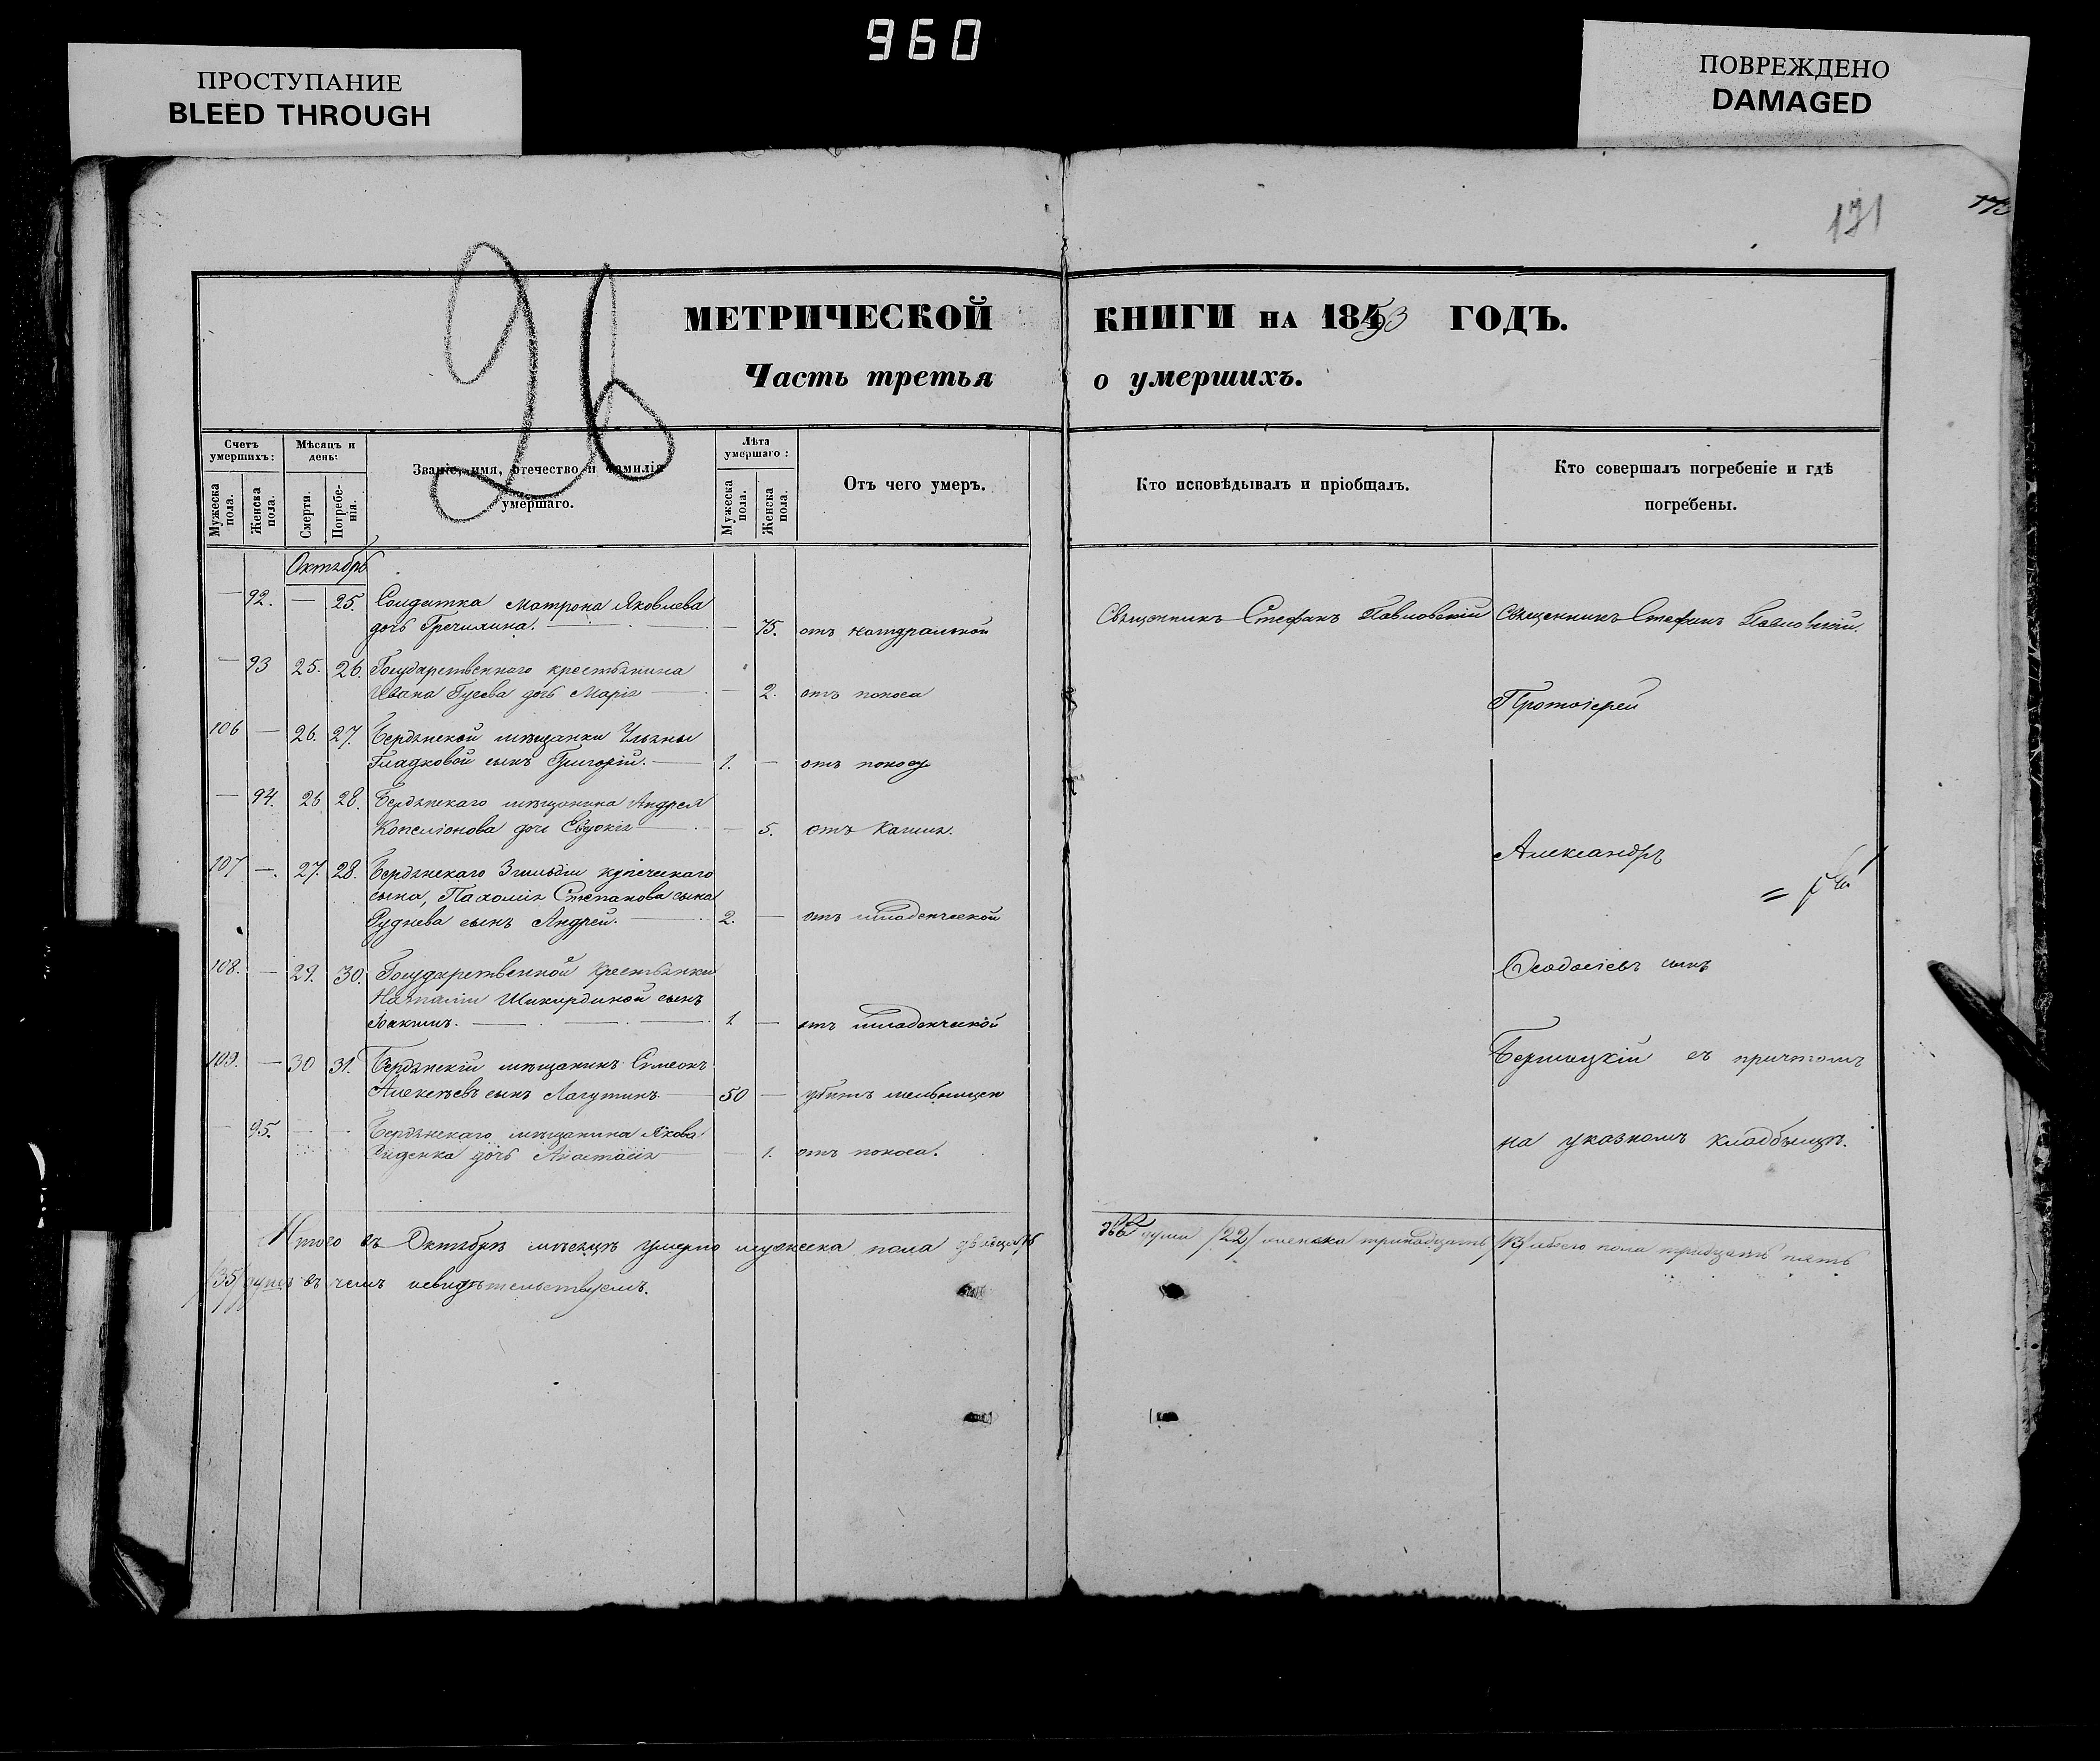 960
ПРОСТУПАНИЕ
BLEED THROUGH
ПОВРЕЖДЕНО
DAMAGED
171
26
МЕТРИЧЕСКОЙ КНИГИ НА 1853 ГОДЪ.
Часть третья о умершихъ.
Счетъ умершихъ:
Мужеска пола.
Женска пола.
Мѣсяцъ и день:
Смерти.
Погребенія.
Званіе, имя, отечество и фамилія умершаго.
Лѣта умершаго:
Мужеска пола.
Женска пола.
Отъ чего умеръ.
Кто исповѣдывалъ и пріобщалъ.
Кто совершалъ погребеніе и гдѣ
погребены.
Октябрь
— 92. — 25. Солдатка Матрона Яковлева
дочь Гречихина. — 75. отъ натуральной Священникъ Стефанъ Павловскій Священникъ Стефанъ Павловскій.
— 93 25. 26. Государственнаго крестьянина
Ивана Гусева дочь Марія — 2. отъ поноса
Протоіерей
106 — 26. 27. Бердянской мѣщанки Ульяны
Гладковой сынъ Григорій. 1. — отъ поноса
— 94. 26 28. Бердянскаго мѣщанина Андрея
дочь Евдокія — 5. отъ кашля.
Александръ
107 — 27. 28. Бердянскаго купеческаго
сына, Пахомія Степанова сына
Руднева сынъ Андрей. 2. — отъ младенческой
108. — 29. 30. Государственной крестьянки
Наталіи сынъ
Іоакимъ. 1 — отъ младенческой
Ѳеодосіевъ сынъ
109. — 30 31. Бердянскій мѣщанинъ Симеонъ
Алексѣевъ сынъ Лагутинъ. 50 — убитъ мельницей
съ причтомъ
— 95. — — Бердянскаго мѣщанина Якова
дочь Анастасія — 1. отъ поноса.
на указномъ кладбищѣ.
Итого въ Октябрѣ мѣсяцѣ умерло мужеска пола двадцать двѣ души /22/ женска тринадцать /13/ обоего пола тридцать пять
/35/ душъ въ чемъ и свидѣтельствуемъ.